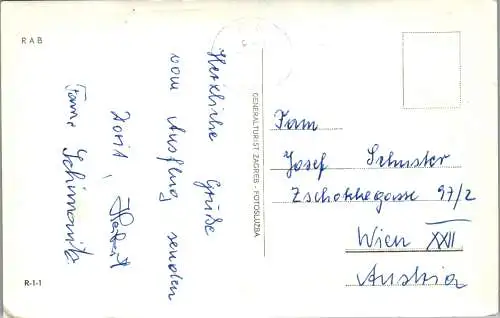 RAB
Herzliche Grüße
vom Ausflug senden
Dorit, Herbert
Fam.
R-1-1
GENERALTURIST ZAGREB - FOTOSLUŽBA
Fam
Josef Schuster
Zschokkegasse 97/2
Wien XXII
Austria